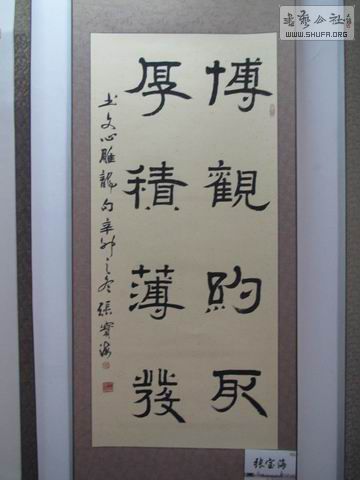 博觀約取
厚積薄發
书文心雕龍句辛卯之冬張寶海
张宝海
书艺公社
WWW.SHUFA.ORG